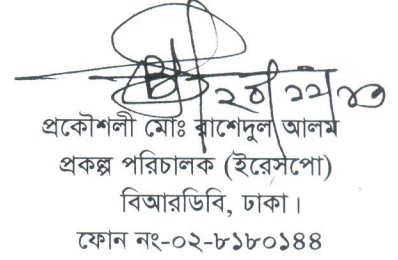 ২০/১১/১৩
প্রকৌশলী মোঃ রাশেদুল আলম
প্রকল্প পরিচালক (ইরেসপো)
বিআরডিবি, ঢাকা।
ফোন নং-০২-৮১৮০১৪৪